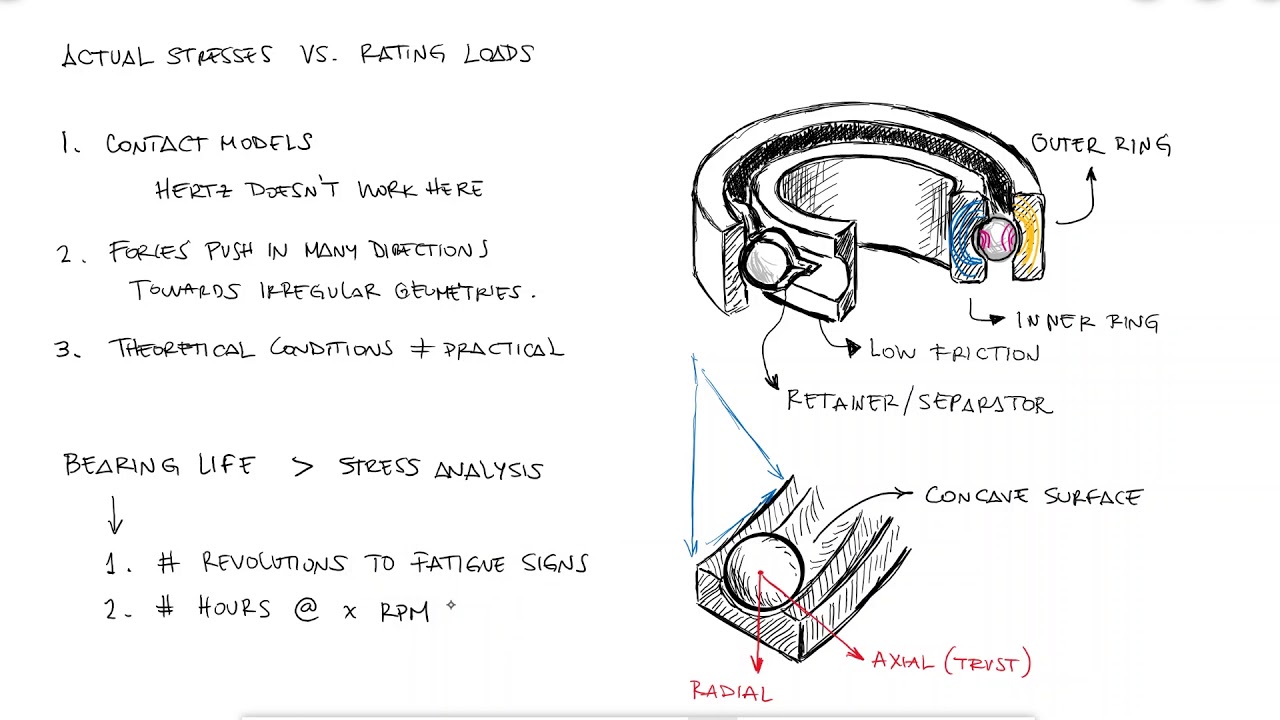 ACTUAL STRESSES VS. RATING LOADS
1. CONTACT MODELS
HERTZ DOESN'T WORK HERE
2. FORCES PUSH IN MANY DIRECTIONS
TOWARDS IRREGULAR GEOMETRIES.
3. THEORETICAL CONDITIONS ≠ PRACTICAL
BEARING LIFE > STRESS ANALYSIS
1. # REVOLUTIONS TO FATIGUE SIGNS
2. # HOURS @ X RPM
OUTER RING
INNER RING
LOW FRICTION
RETAINER/SEPARATOR
CONCAVE SURFACE
AXIAL (TRUST)
RADIAL